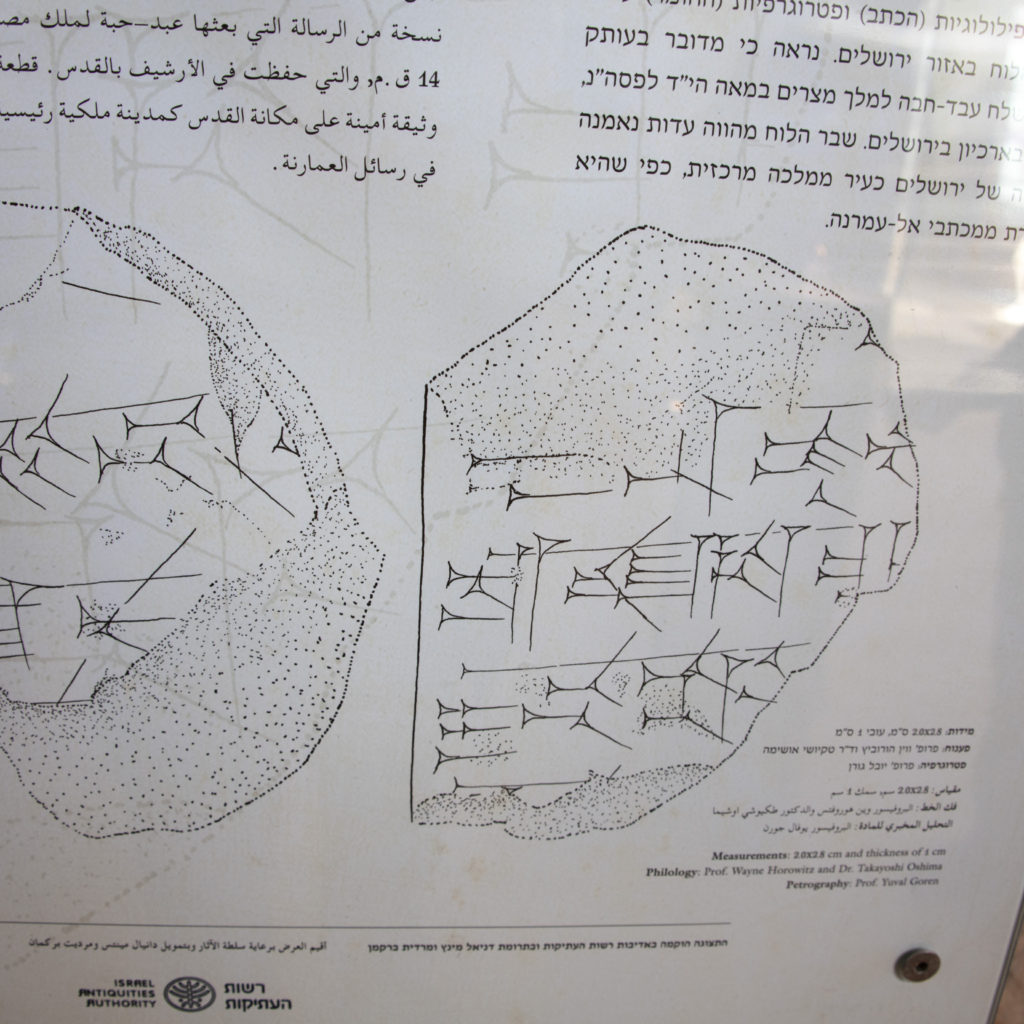 نسخة من الرسالة التي بعثها عبد–حبة لملك
14 ق.م، والتي حفظت في الأرشيف بالقدس. قطعة
وثيقة أمينة على مكانة القدس كمدينة ملكية
في رسائل العمارنة.
פילולוגיות (הכתב) ופטרוגרפיות
באזור ירושלים. נראה כי מדובר בעותק
עבד-חבה למלך מצרים במאה הי״ד לפסה״נ,
בארכיון בירושלים. שבר הלוח מהווה עדות נאמנה
של ירושלים כעיר ממלכה מרכזית, כפי שהיא
ממכתבי אל-עמרנה.
מידות: 2.0x2.8 ס"מ, עובי 1 ס"מ
פענוח: פרופ' ווין הורוביץ וד"ר טקיושי אושימה
פטרוגרפיה: פרופ' יובל גורן
مقياس: 2.0x2.8 سم، سمك 1 سم
فك الخط: البروفيسور وين هوروفتس والدكتور طكيوشي اوشيما
التحليل المخبري للمادة: البروفيسور يوفال جورن
Measurements: 2.0x2.8 cm and thickness of 1 cm
Philology: Prof. Wayne Horowitz and Dr. Takayoshi Oshima
Petrography: Prof. Yuval Goren
התצוגה הוקמה באדיבות רשות העתיקות ובתרומת דניאל מינץ ומרדית ברקמן
أقيم العرض برعاية سلطة الآثار وبتمويل دانيال مينتس ومرديت بركمان
ISRAEL
ANTIQUITIES
AUTHORITY
רשות
העתיקות